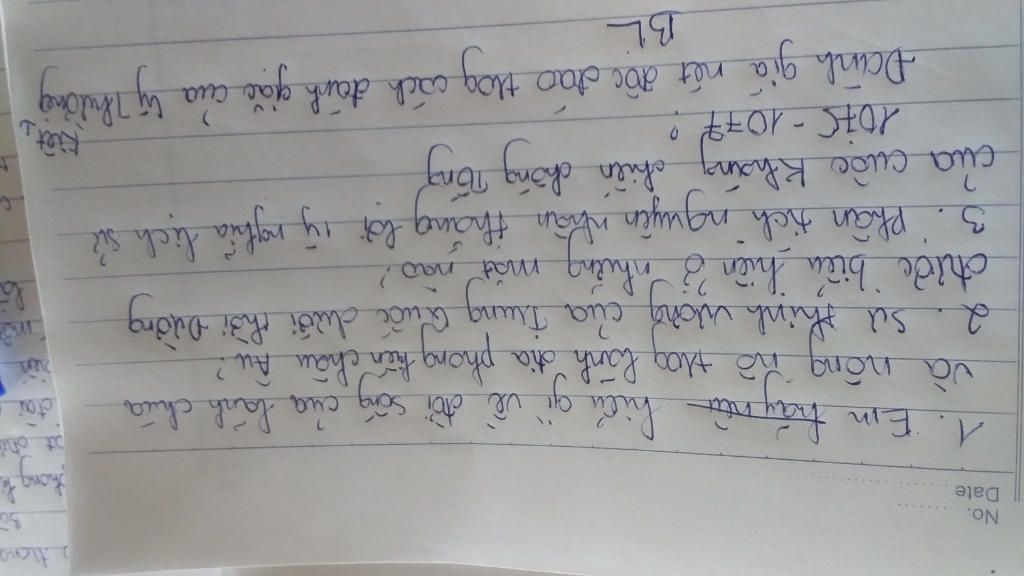 No.
Date
1. Em hãy nêu hiểu gì về đời sống của lãnh chúa
và nông nô tròg lãnh địa phong kiến châu Âu?
2. Sự thịnh vượng của Trung Quốc dưới thời Đường
được biểu hiện ở những mặt nào?
3. Phân tích nguyên nhân thắng lợi, ý nghĩa lịch sử
của cuộc kháng chiến chống Tống
1075 - 1077?
Đánh giá nét độc đáo trog cách đánh giặc của Lý Thường
Kiệt
BL